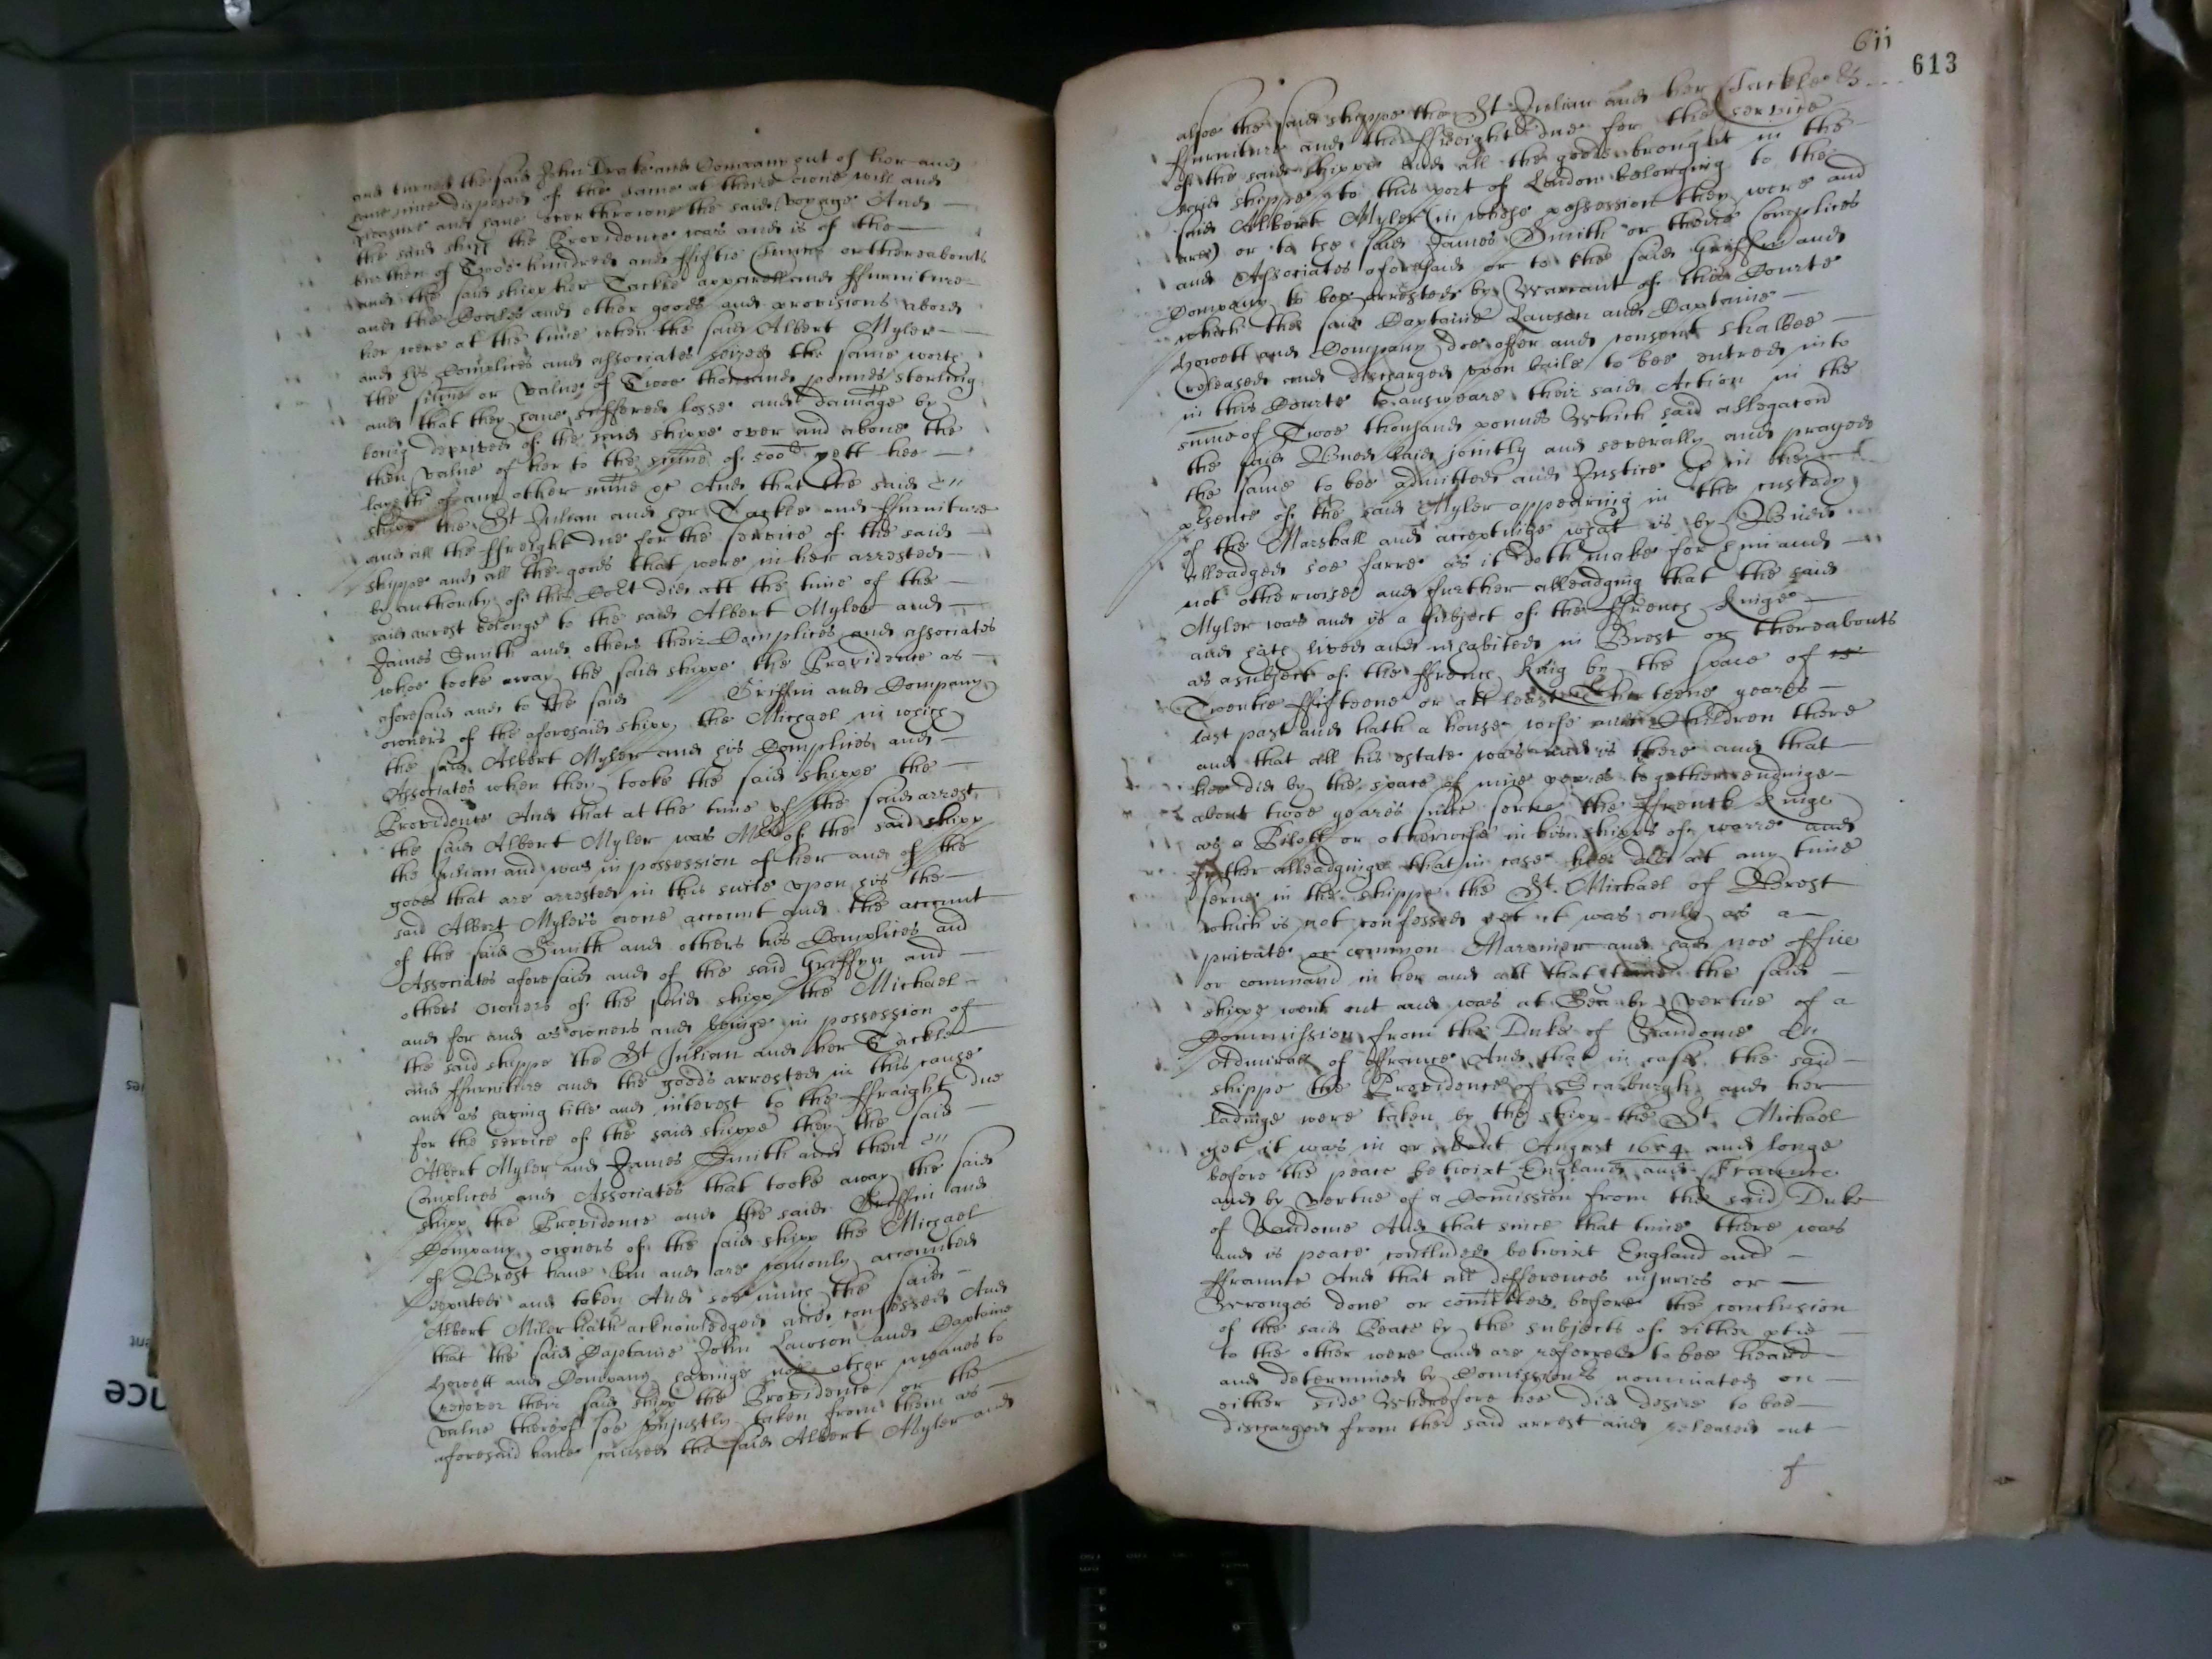 and turned the said John Drake and Company out of her and
have since disposed of the same at theire owne will and
pleasure and have overthrowne the said voyage And
the said shipp the Providence was and is of the
burthen of Twoe hundred and ffiftie Tunnes or thereabouts
and the said shipp her Tackle apparell and ffurniture
and the Coales and other goods and provisions abord
her were at the time when the said Albert Myler
and his Complices and associates seized the same worth
the sume or value of Twoe thousand pounds sterling
and that they have suffered losse and damage by
being deprived of the said shippe over and above the
then value of her to the sume of 500li yett hee
largeth of any other sume &c And that the said
shipp the St Julian and her Tackle and ffurniture
and all the ffreight due for the service of the said
shippe and all the goods that were in her arrested
by authority of this Co:rt did att the time of the
said arrest belonge to the said Albert Myler and
James Smith and others their Complices and associates
whoe tooke away the said shippe the Providence as
aforesaid and to the said Griffin and Company
owners of the aforesaid shipp the Michael in which
the said Albert Myler and his Complices and
Associates when they tooke the said shippe the
Providence And that at the time of the said arrest
the said Albert Myler was Mr of the said shipp
the Julian and was in possession of her and of the
goods that are arrested in this suite upon his the
said Albert Mylers owne account and the account
of the said Smith and others his Complices and
Associates aforesaid and of the said Griffyn and
others owners of the said shipp the Michael
and for and as owners and beinge in possession of
the said shippe the St Julian and her Tackle
and ffurniture and the goods arrested in this cause
and as having title and interest to the ffraight due
for the service of the said shippe they the said
Albert Myler and James Smith and their
Complices and Associates that tooke away the said
shipp the Providence and the said Griffin and
Company owners of the said shipp the Michael
of Brest have bin and are comonly accounted
reputed and taken And soe much the said
Albert Miler hath acknowledged and confessed And
that the said Captaine John Lawson and Captaine
Howett and Company havinge noe other meanes to
recover their said shipp the Providence or the
value thereof soe unjustly taken from them as
aforesaid have caused the said Albert Myler and
611
613
alsoe the said shippe the St Julian and her Tackle &
ffurniture and the ffreight due for the service
of the said shippe and all the goods brought in the
said shippe to this port of London belonging to the
said Albert Myler (in whose possession they were and
are) or to the said James Smith or theire Complices
and Associates aforesaid or to the said Griffin and
Company to bee arrested by Warrant of this Courte
which the said Captaine Lawson and Captaine
Howett and Company doe offer and consent shalbee
released and discharged upon baile to bee entred into
in this Courte to answeare their said Action in the
sume of Twoe thousand pounds Which said allegacon
the said Budd said jointly and severally and prayed
the same to bee admitted and Justice &c in the
p'sence of the said Myler appearing in the custody
of the Marshall and acceptinge what is by Budd
alleadged soe farre as it doth make for him and
not otherwise and further alleadging that the said
Myler was and is a subject of the ffrench Kinge
and hath lived and inhabited in Brest or thereabouts
as a subject of the ffrench King by the space of
Twentie ffifteene or att least Thirteene yeares
last past and hath a house wife and Children there
and that all his estate was and is there and that
hee did by the space of nine yeares together endinge
about twoe yeares since serve the ffrench Kinge
as a Pilott or otherwise in his shipps of warre and
further alleadginge that in case hee did at any time
serve in the shippe the St. Michael of Brest
which is not confessed yet it was only as a
private or common Marriner and had noe office
or command in her and att that time the said
shippe went out and was at Sea by vertue of a
Commission from the Duke of Vandome
Admirall of ffrance And that in case the said
shippe the Providence of Scarburgh and her
ladinge were taken by the shipp the St. Michael
yet it was in or about August 1654 and longe
before the peace betwixt England and France
and by vertue of a Comission from the said Duke
of Vandome And that since that time there was
and is peace concluded betwixt England and
ffrance And that all differences injuries or
Wronges done or comitted before the conclusion
of the said Peace by the subjects of either ptie
to the other were and are referred to bee heard
and determined by Comissioners nominated on
either side Wherefore hee did desire to bee
discharged from the said arrest and released out
of